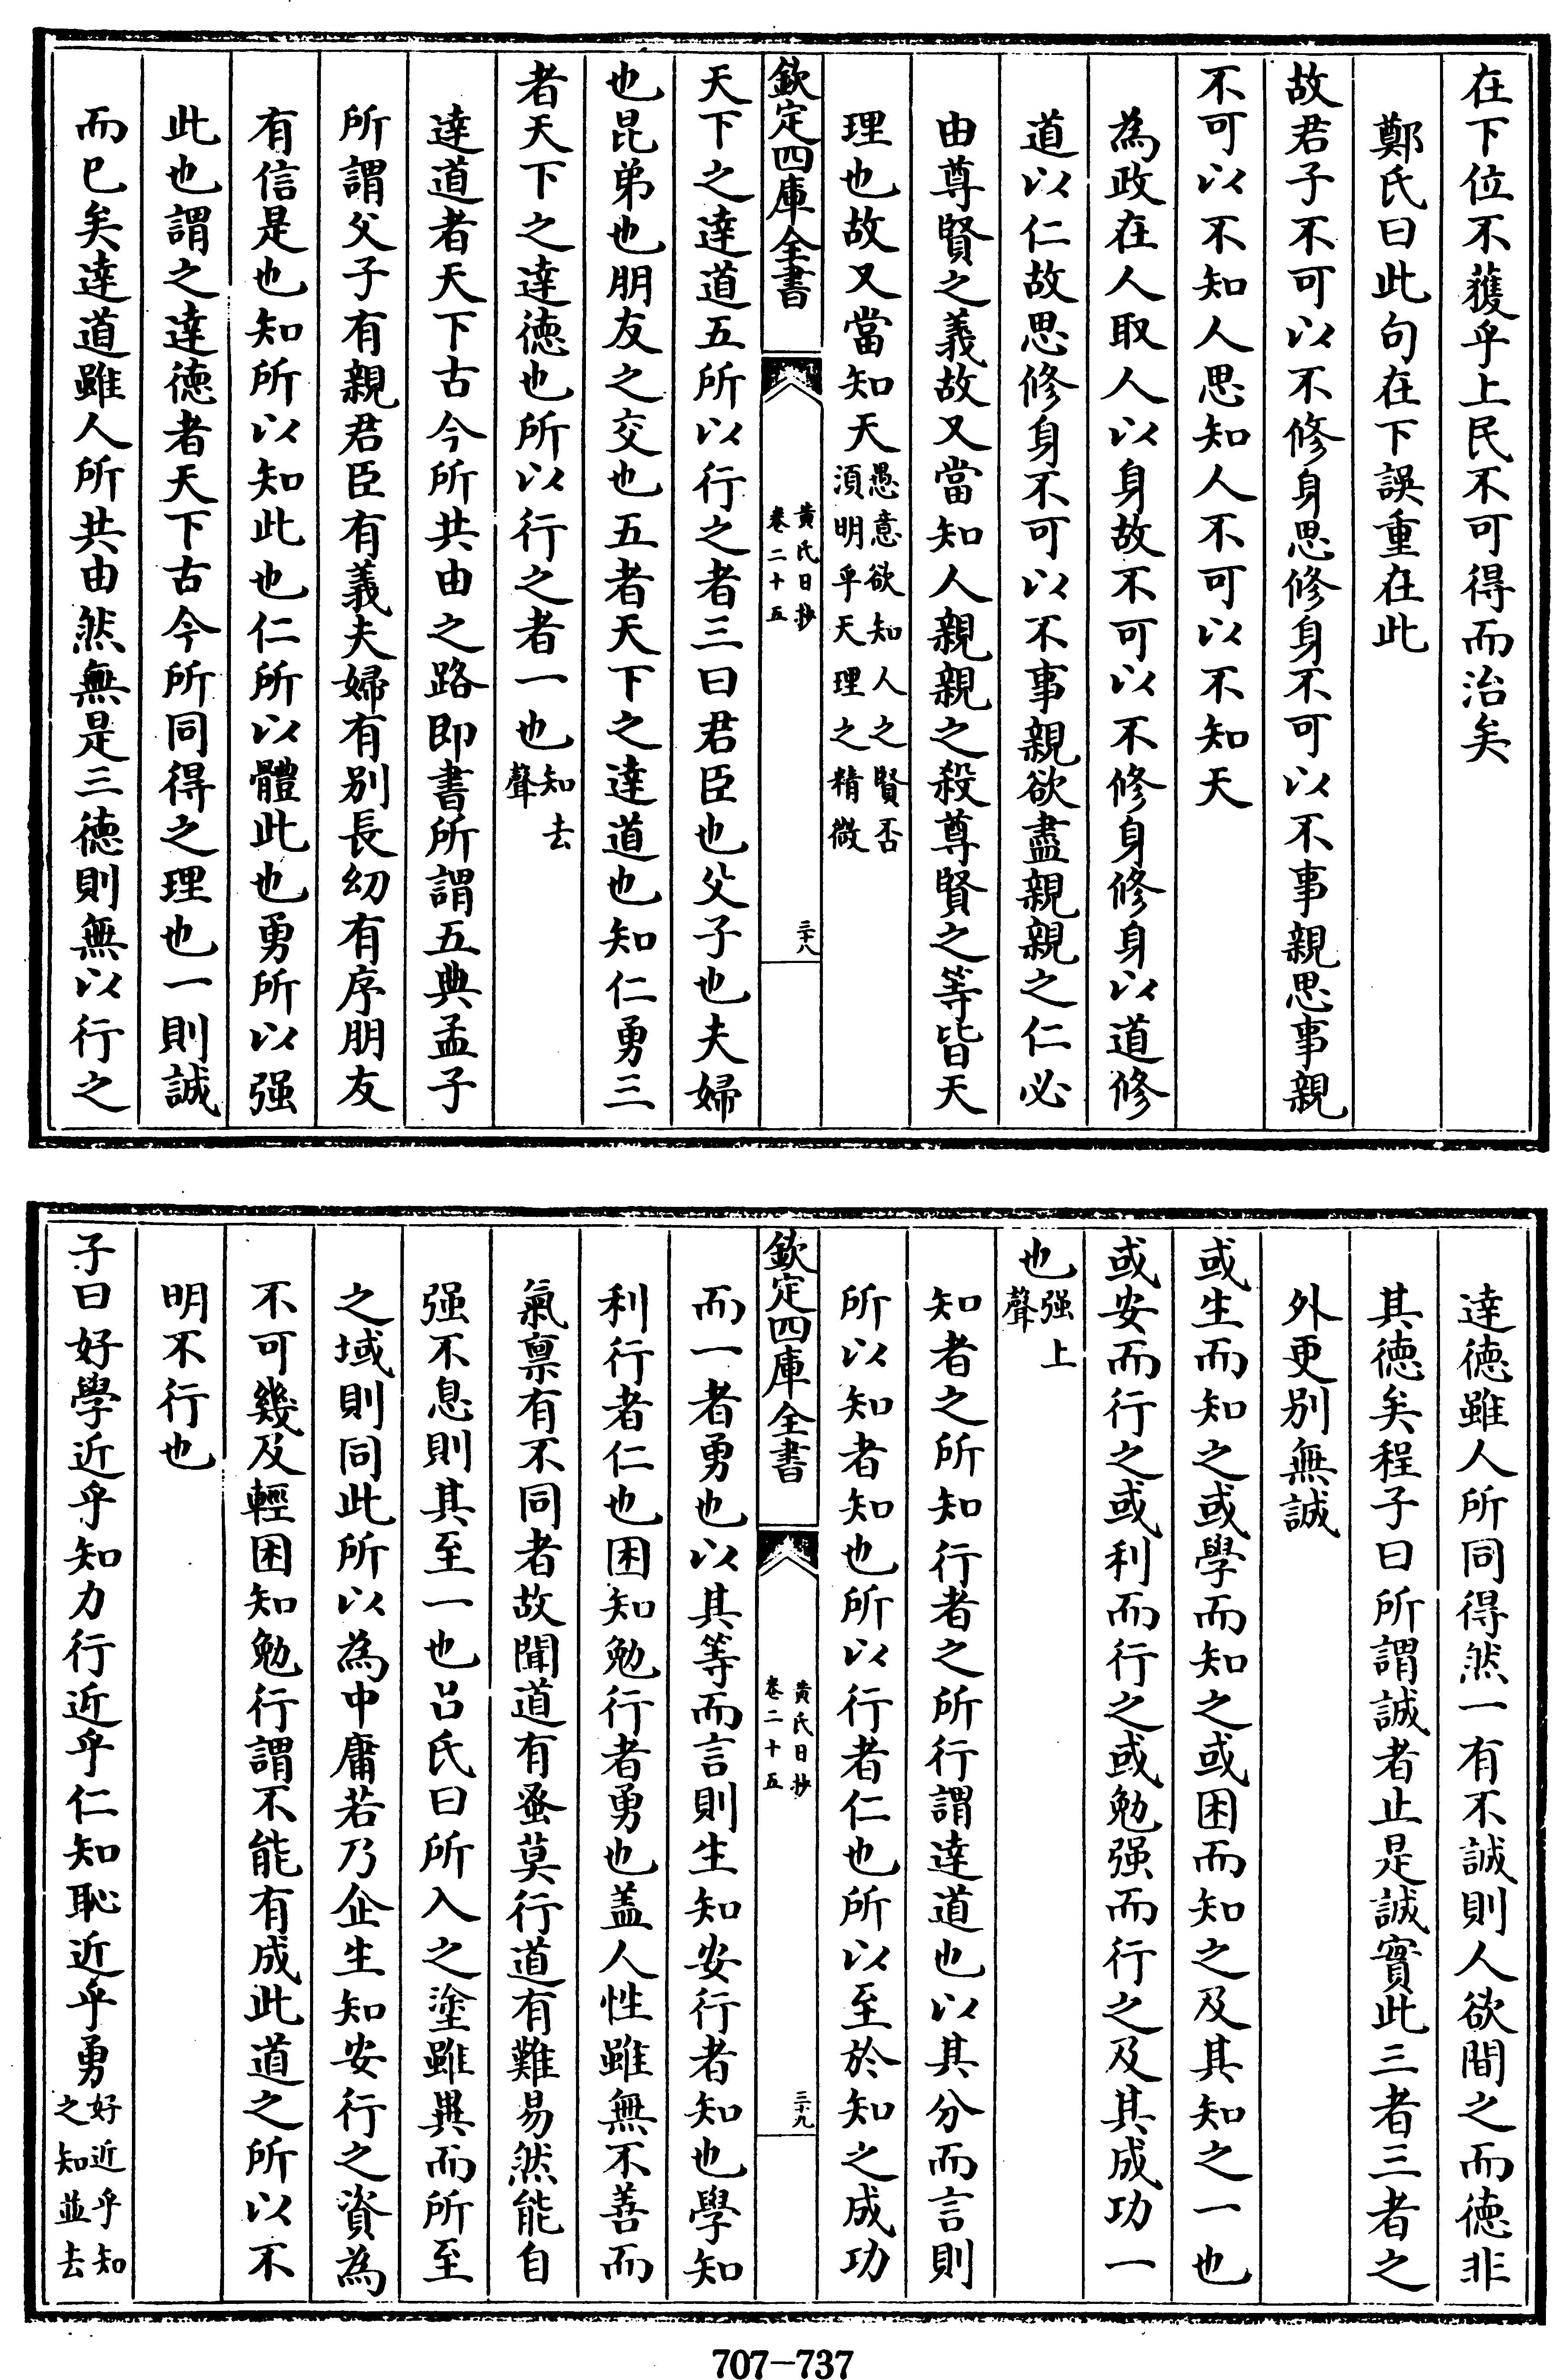 在下位不獲乎上民不可得而治矣
鄭氏曰此句在下誤重在此
故君子不可以不修身思修身不可以不事親思事親
不可以不知人思知人不可以不知天
為政在人取人以身故不可以不修身修身以道修
道以仁故思修身不可以不事親欲盡親親之仁必
由尊賢之義故又當知人親親之殺尊賢之等皆天
理也故又當知天愚意欲知人之賢否
須明乎天理之精微
欽定四庫全書
黃氏日抄
卷二十五
三十八
天下之達道五所以行之者三曰君臣也父子也夫婦
也昆弟也朋友之交也五者天下之達道也知仁勇三
者天下之達德也所以行之者一也知去
聲
達道者天下古今所共由之路即書所謂五典孟子
所謂父子有親君臣有義夫婦有别長幼有序朋友
有信是也知所以知此也仁所以體此也勇所以强
此也謂之達德者天下古今所同得之理也一則誠
而已矣達道雖人所共由然無是三德則無以行之
達德雖人所同得然一有不誠則人欲間之而德非
其德矣程子曰所謂誠者止是誠實此三者三者之
外更别無誠
或生而知之或學而知之或困而知之及其知之一也
或安而行之或利而行之或勉强而行之及其成功一
也强上
聲
知者之所知行者之所行謂達道也以其分而言則
所以知者知也所以行者仁也所以至於知之成功
欽定四庫全書
黃氏日抄
卷二十五
三十九
而一者勇也以其等而言則生知安行者知也學知
利行者仁也困知勉行者勇也盖人性雖無不善而
氣禀有不同者故聞道有蚤莫行道有難易然能自
强不息則其至一也吕氏曰所入之塗雖異而所至
之域則同此所以為中庸若乃企生知安行之資為
不可幾及輕困知勉行謂不能有成此道之所以不
明不行也
子曰好學近乎知力行近乎仁知恥近乎勇好近乎知
之知並去
707-737